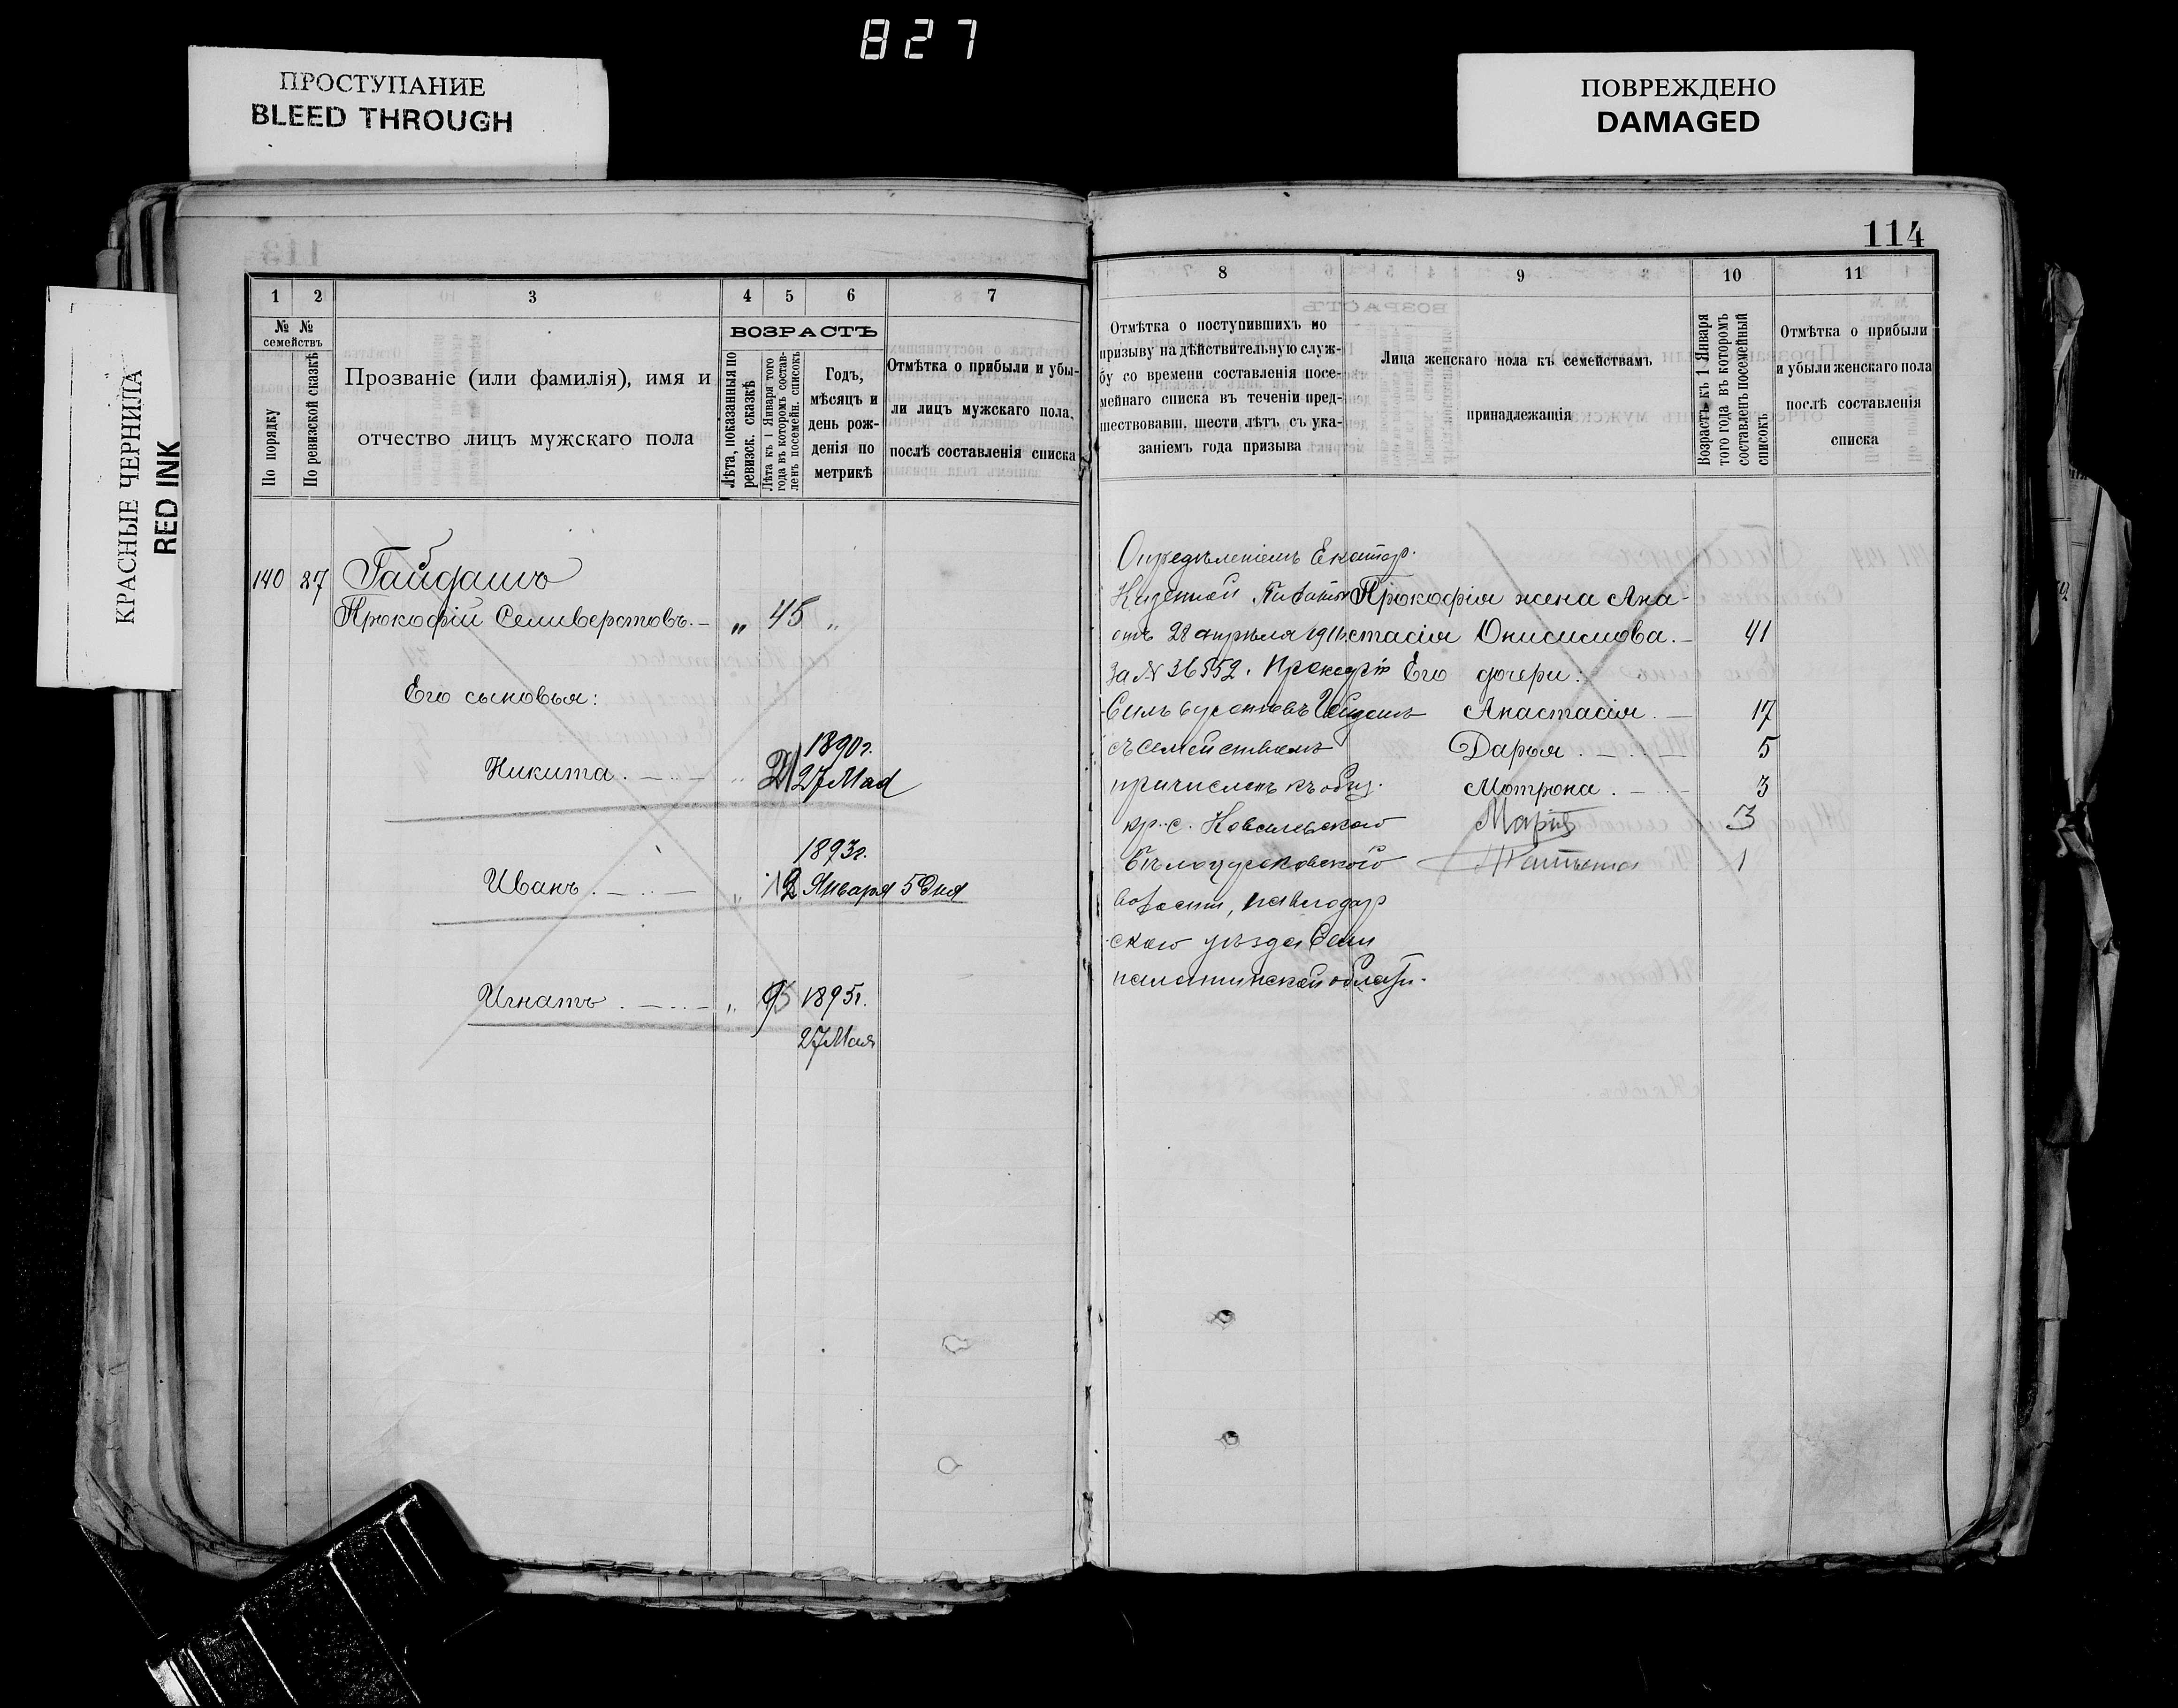 827
ПРОСТУПАНИЕ
BLEED THROUGH
ПОВРЕЖДЕНО
DAMAGED
КРАСНЫЕ ЧЕРНИЛА
RED INK
1 2 3 4 5 6 7
№ № семействъ
По порядку
По ревизской сказкѣ
Прозваніе (или фамилія), имя и
отчество лицъ мужскаго пола
ВОЗРАСТЪ
Лѣта, показанныя по
ревизск. сказкѣ
Лѣта къ 1 Января того
года въ которомъ состав-
ленъ посемейн. списокъ
Годъ,
мѣсяцъ и
день рож-
денія по
метрикѣ
Отмѣтка о прибыли и убы-
ли лицъ мужскаго пола,
послѣ составленія списка
140 87 Гайдашъ
Прокофій Селиверстовъ. „ 45 „
Его сыновья:
1890г.
Никита . 27 Мая
1893г.
Иванъ . „ Января 5 дня
Игнатъ . „ 1895г.
27 Мая
114
8 9 10 11
Отмѣтка о поступившихъ по
призыву на дѣйствительную служ-
бу со времени составленія посе-
мейнаго списка въ теченіи пред-
шествовавш. шести лѣтъ съ ука-
заніемъ года призыва
Лица женскаго пола къ семействамъ
принадлежащія
Возрастъ къ 1 Января
того года въ которомъ
составленъ посемейный
списокъ
Отмѣтка о прибыли
и убыли женскаго пола
послѣ составленія
списка
Опредѣленіемъ Екатер.
Казенной Палаты
отъ 28 апрѣля 1911г.
за № 36552. Прокофій
Сильверстовъ Гайдашъ
съ семействомъ
причисленъ къ общ.
кр. с.
волости, Павлодар
скаго уѣзда Семи
палатинской област.
Прокофія жена Ана-
стасія Онисимова. 41
Его дочери:
Анастасія . 17
Дарья . 5
Мотрона . 3
Марія 3
Татьяна 1